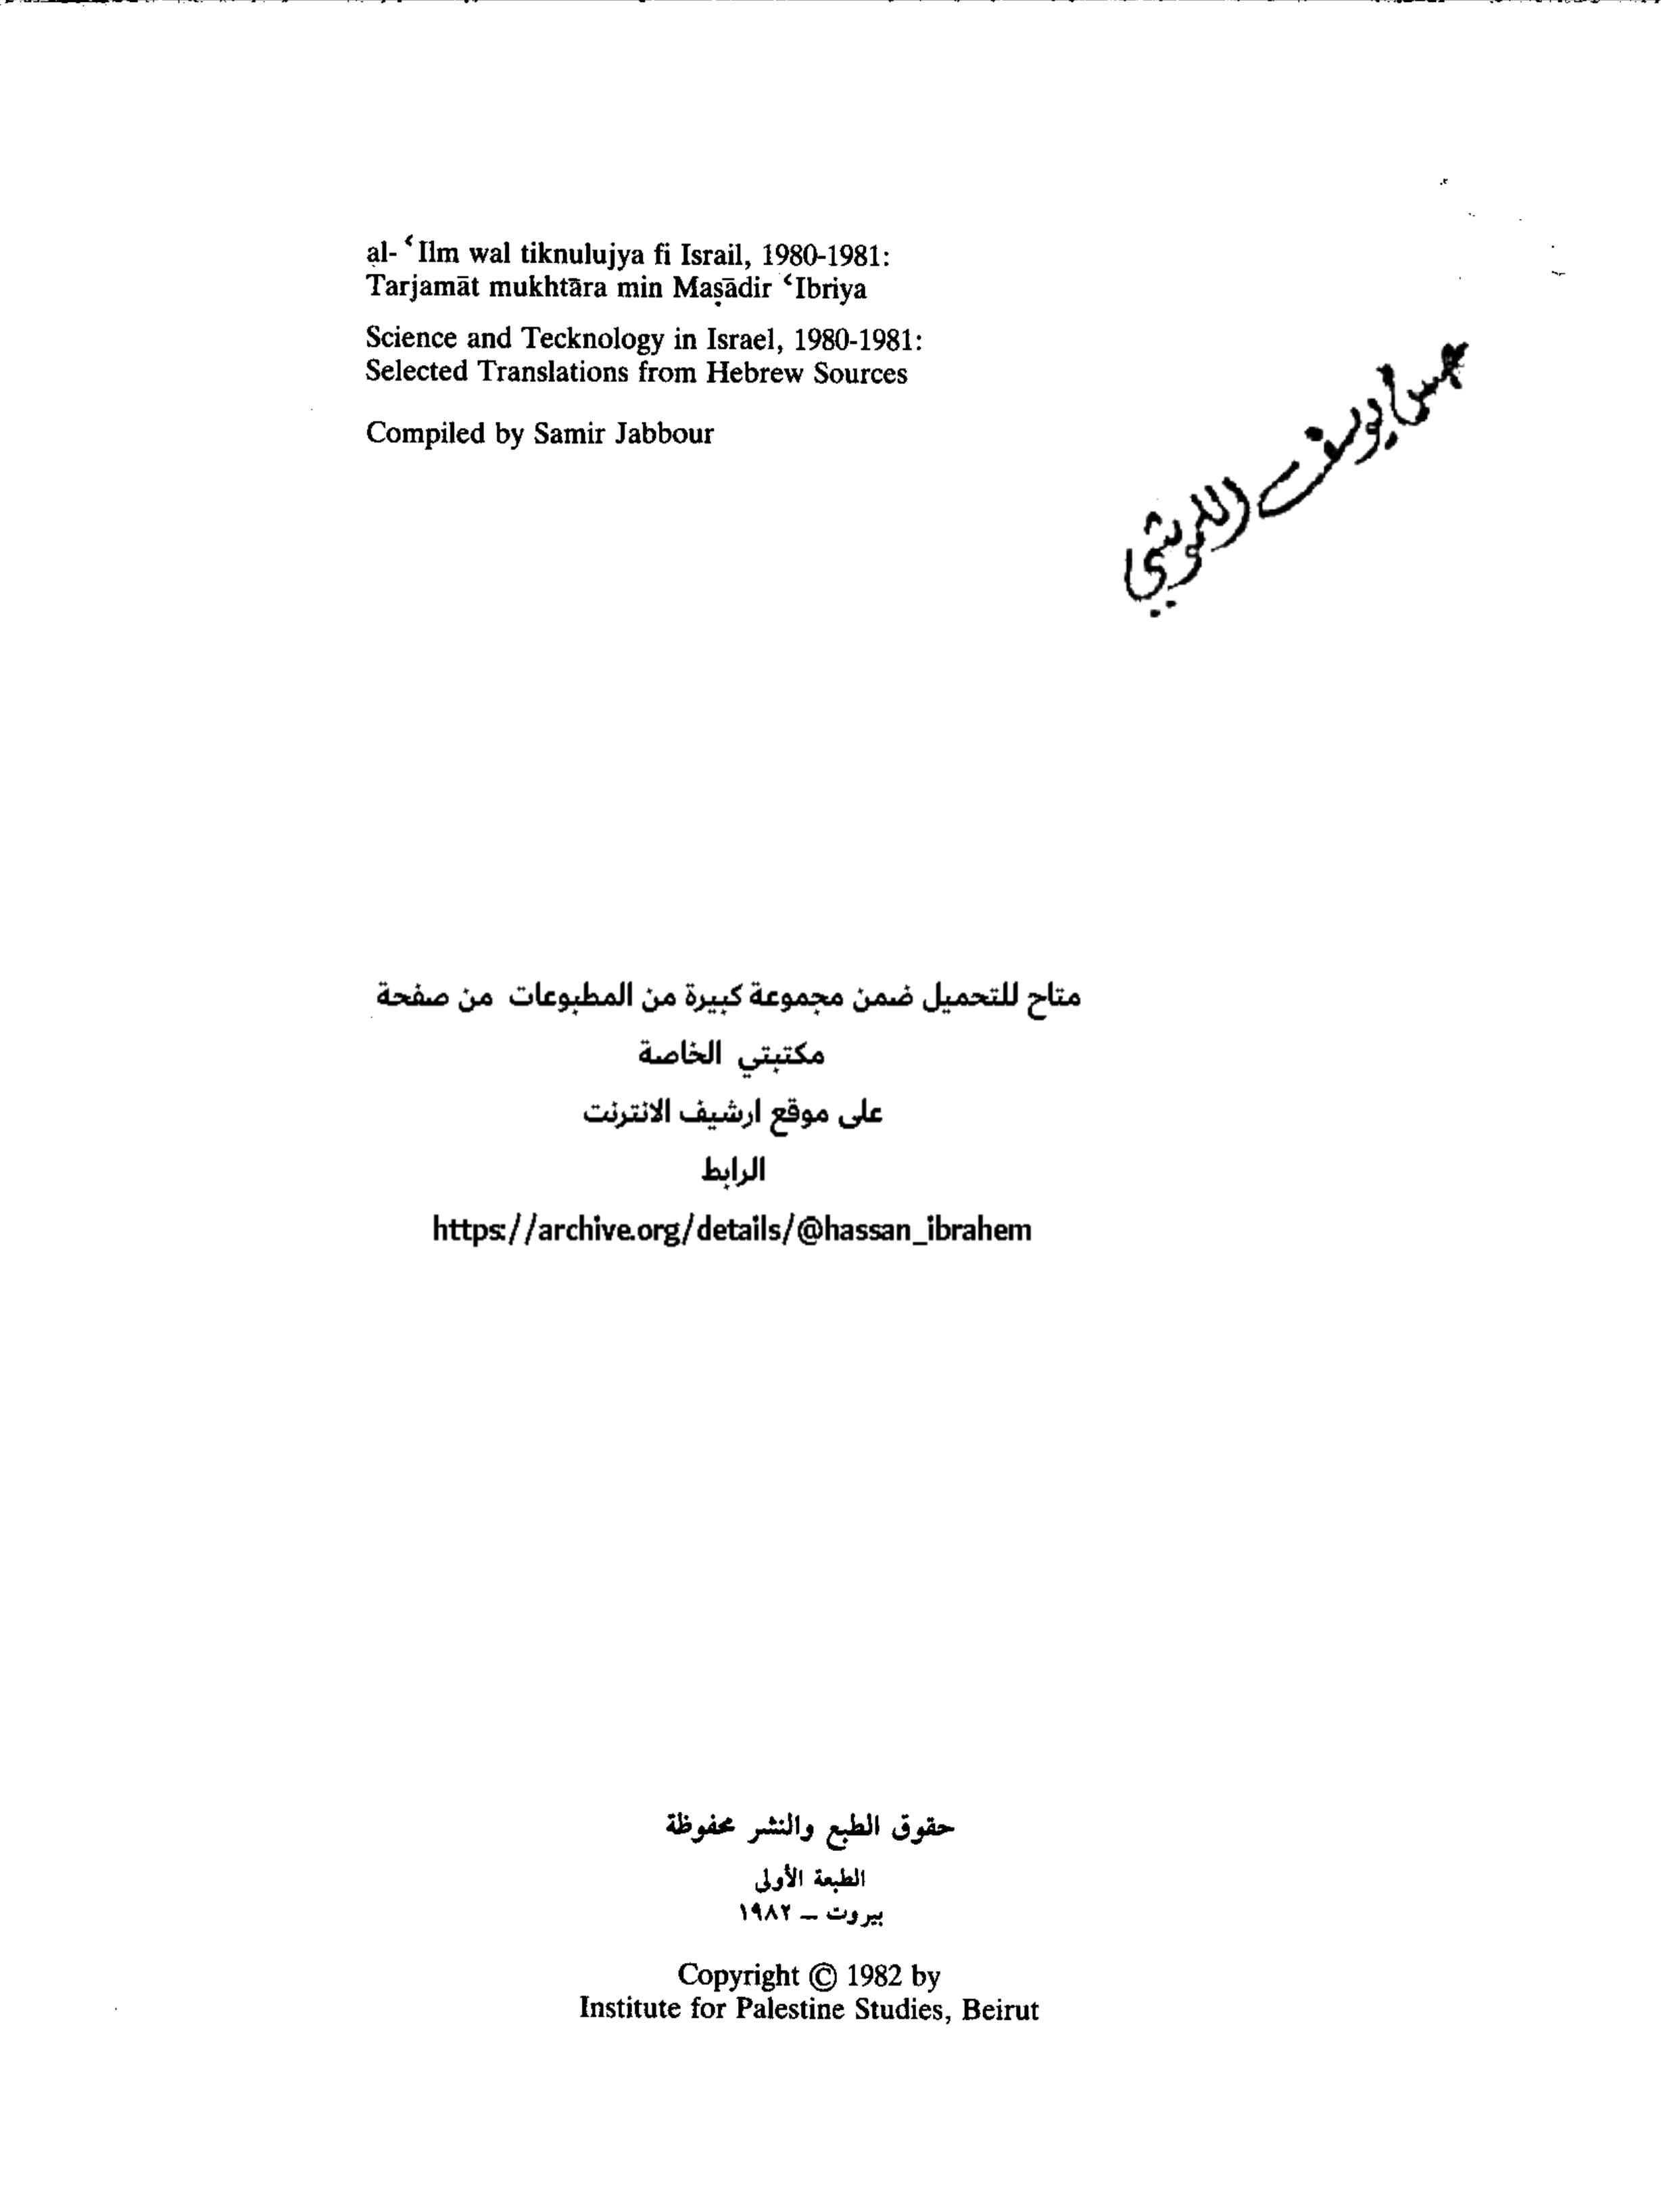 al- ‘Ilm wal tiknulujya fi Israil, 1980-1981:
Tarjamāt mukhtāra min Maṣādir ‘Ibriya
Science and Tecknology in Israel, 1980-1981:
Selected Translations from Hebrew Sources
Compiled by Samir Jabbour
يوسف
متاح للتحميل ضمن مجموعة كبيرة من المطبوعات من صفحة
مكتبتي الخاصة
على موقع ارشيف الانترنت
الرابط
https://archive.org/details/@hassan_ibrahem
حقوق الطبع والنشر محفوظة
الطبعة الأولى
بيروت – ١٩٨٢
Copyright © 1982 by
Institute for Palestine Studies, Beirut